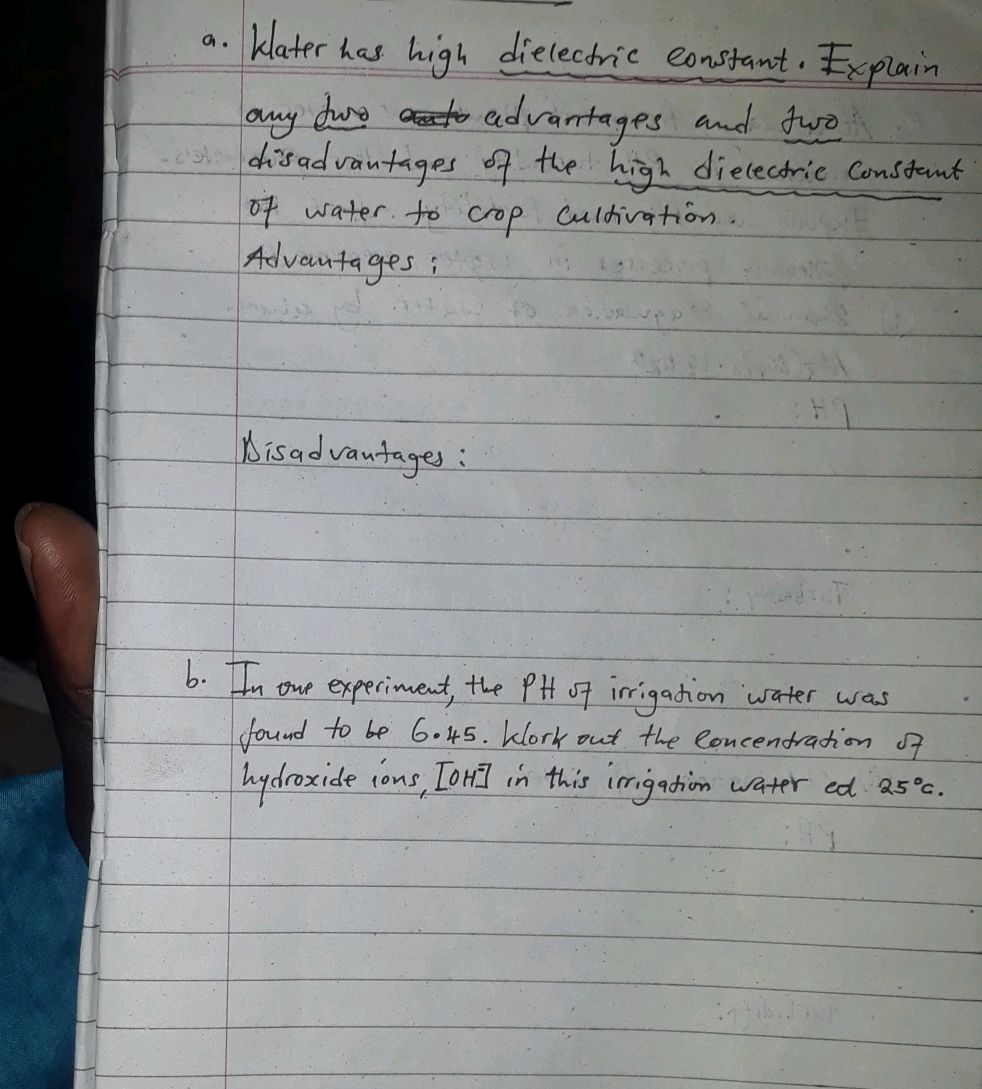 a. Water has high dielectric constant. Explain
any two advantages and two
disadvantages of the high dielectric constant
of water to crop cultivation.
Advantages:
Disadvantages:
b. In one experiment, the PH of irrigation water was
found to be 6.45. Work out the concentration of
hydroxide ions, [OH] in this irrigation water at 25°c.